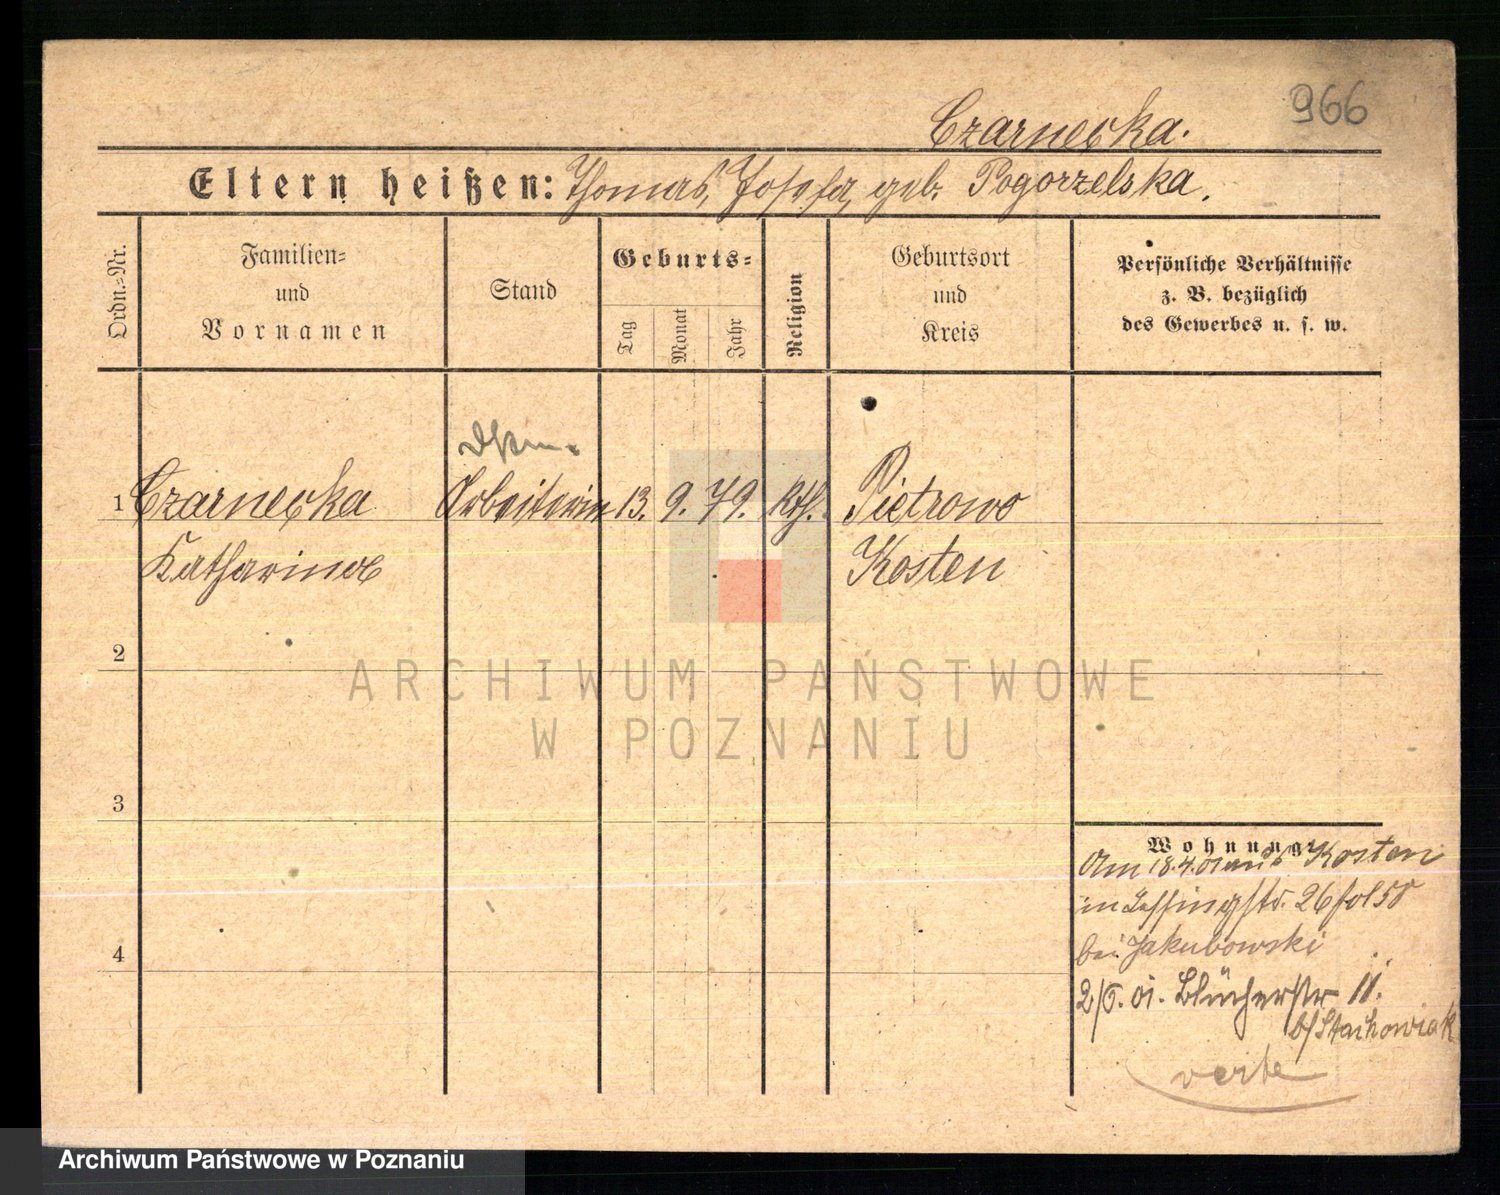 966
Czarnecka.
Eltern heißen: Thomas, Josefa, geb. Pogorzelska.
Ordn.-Nr.
Familien-
und
Vornamen
Stand
Geburts-
Tag
Monat
Jahr
Religion
Geburtsort
und
Kreis
Persönliche Verhältnisse
z. B. bezüglich
des Gewerbes u. s. w.
1 Czarnecka Arbeiterin 13. 9. 79. kth. Pietrowo
Katharina Kosten
2
3
4
Wohnung:
Am 18.4.01 aus Kosten
in Lessingstr. 26 fol 50
bei Jakubowski
2/5. 01. Blücherstr 11.
b/Stachowiak
verte
ARCHIWUM PAŃSTWOWE
W POZNANIU
Archiwum Państwowe w Poznaniu